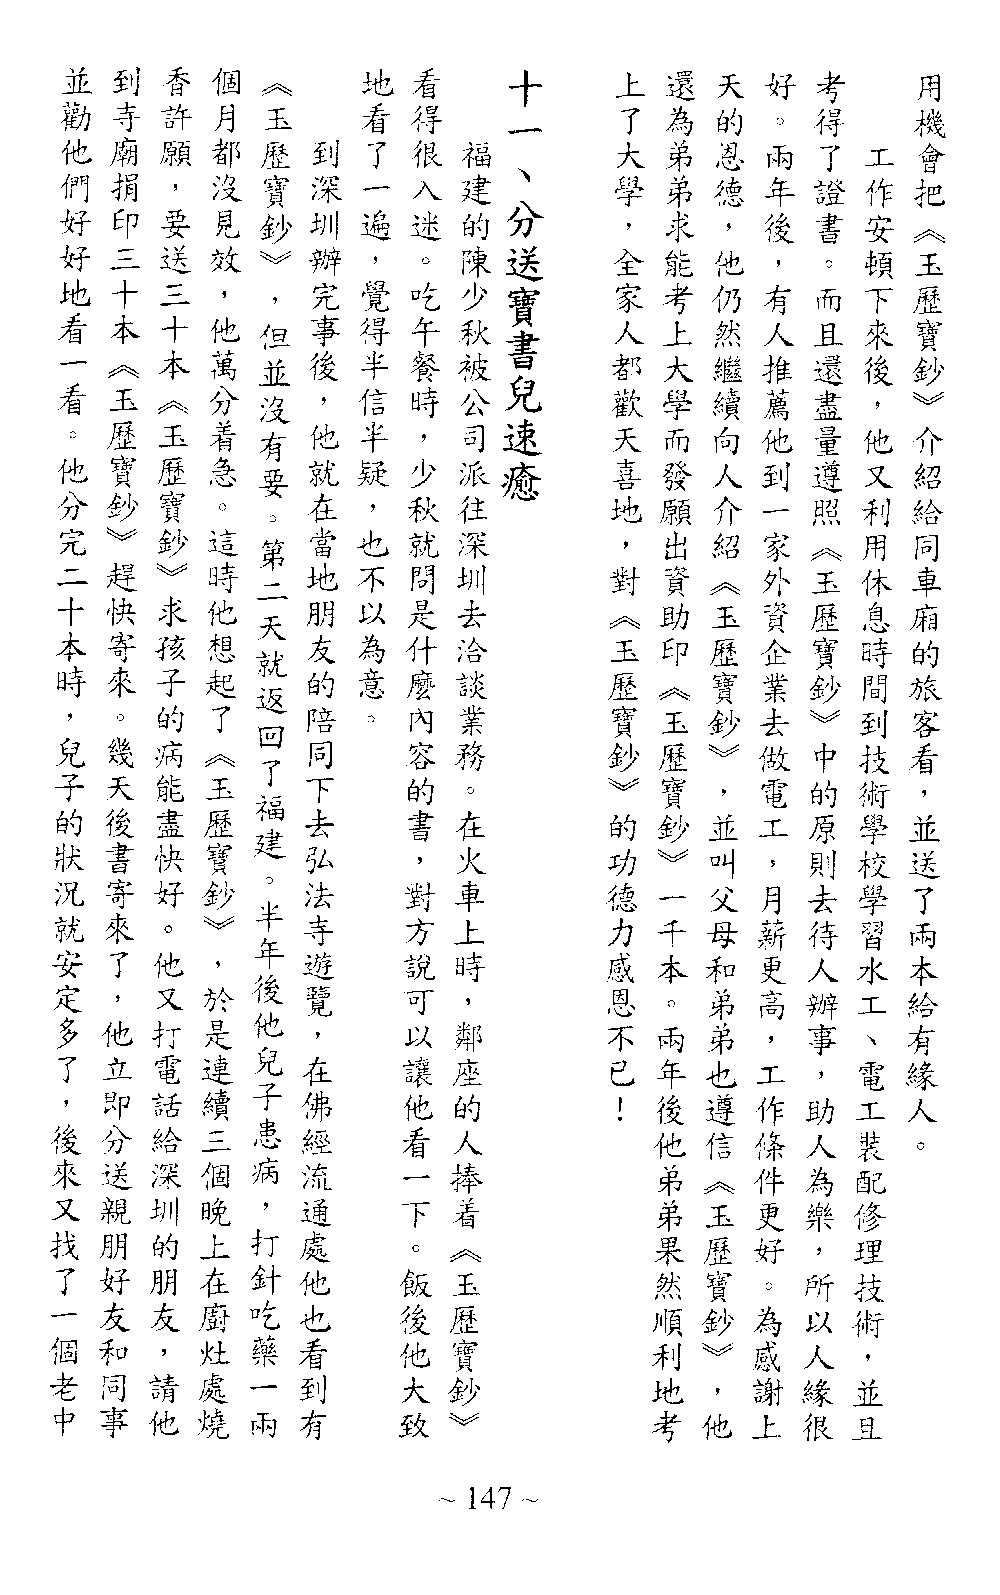 用機會把《玉歷寶鈔》介紹給同車廂的旅客看，並送了兩本給有緣人。
工作安頓下來後，他又利用休息時間到技術學校學習水工、電工裝配修理技術，並且
考得了證書。而且還盡量遵照《玉歷寶鈔》中的原則去待人辦事，助人為樂，所以人緣很
好。兩年後，有人推薦他到一家外資企業去做電工，月薪更高，工作條件更好。為感謝上
天的恩德，他仍然繼續向人介紹《玉歷寶鈔》，並叫父母和弟弟也遵信《玉歷寶鈔》，他
還為弟弟求能考上大學而發願出資助印《玉歷寶鈔》一千本。兩年後他弟弟果然順利地考
上了大學，全家人都歡天喜地，對《玉歷寶鈔》的功德力感恩不已！
十一、分送寶書兒速癒
福建的陳少秋被公司派往深圳去洽談業務。在火車上時，鄰座的人捧着《玉歷寶鈔》
看得很入迷。吃午餐時，少秋就問是什麼內容的書，對方說可以讓他看一下。飯後他大致
地看了一遍，覺得半信半疑，也不以為意。
到深圳辦完事後，他就在當地朋友的陪同下去弘法寺遊覽，在佛經流通處他也看到有
《玉歷寶鈔》，但並沒有要。第二天就返回了福建。半年後他兒子患病，打針吃藥一兩
個月都沒見效，他萬分着急。這時他想起了《玉歷寶鈔》，於是連續三個晚上在廚灶處燒
香許願，要送三十本《玉歷寶鈔》求孩子的病能盡快好。他又打電話給深圳的朋友，請他
到寺廟捐印三十本《玉歷寶鈔》趕快寄來。幾天後書寄來了，他立即分送親朋好友和同事
並勸他們好好地看一看。他分完二十本時，兒子的狀況就安定多了，後來又找了一個老中
~ 147 ~